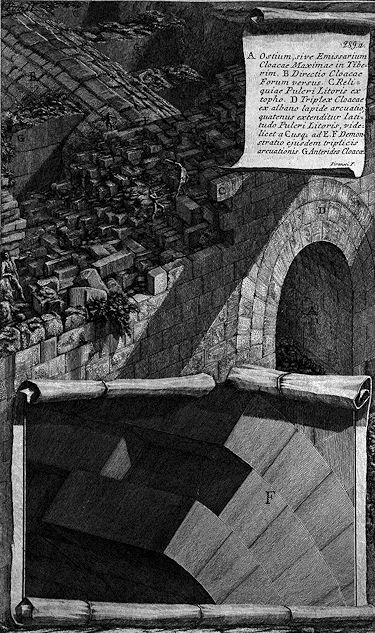 289.a.
A. Ostium, sive Emissarium
Cloacae Maximae in Tibe-
rim. B Directio Cloacae
Forum versus. C. Reli-
quiae Pulcri Litoris ex
topho. D Triplex Cloacae
ex albano lapide arcuatio,
quatenus extenditur lati-
tudo Pulcri Litoris, vide-
licet a C usq. ad E. F. Demon-
stratio ejusdem triplicis
arcuationis. G. Anterides Cloacae
Piranesi F.
C
D
A
F